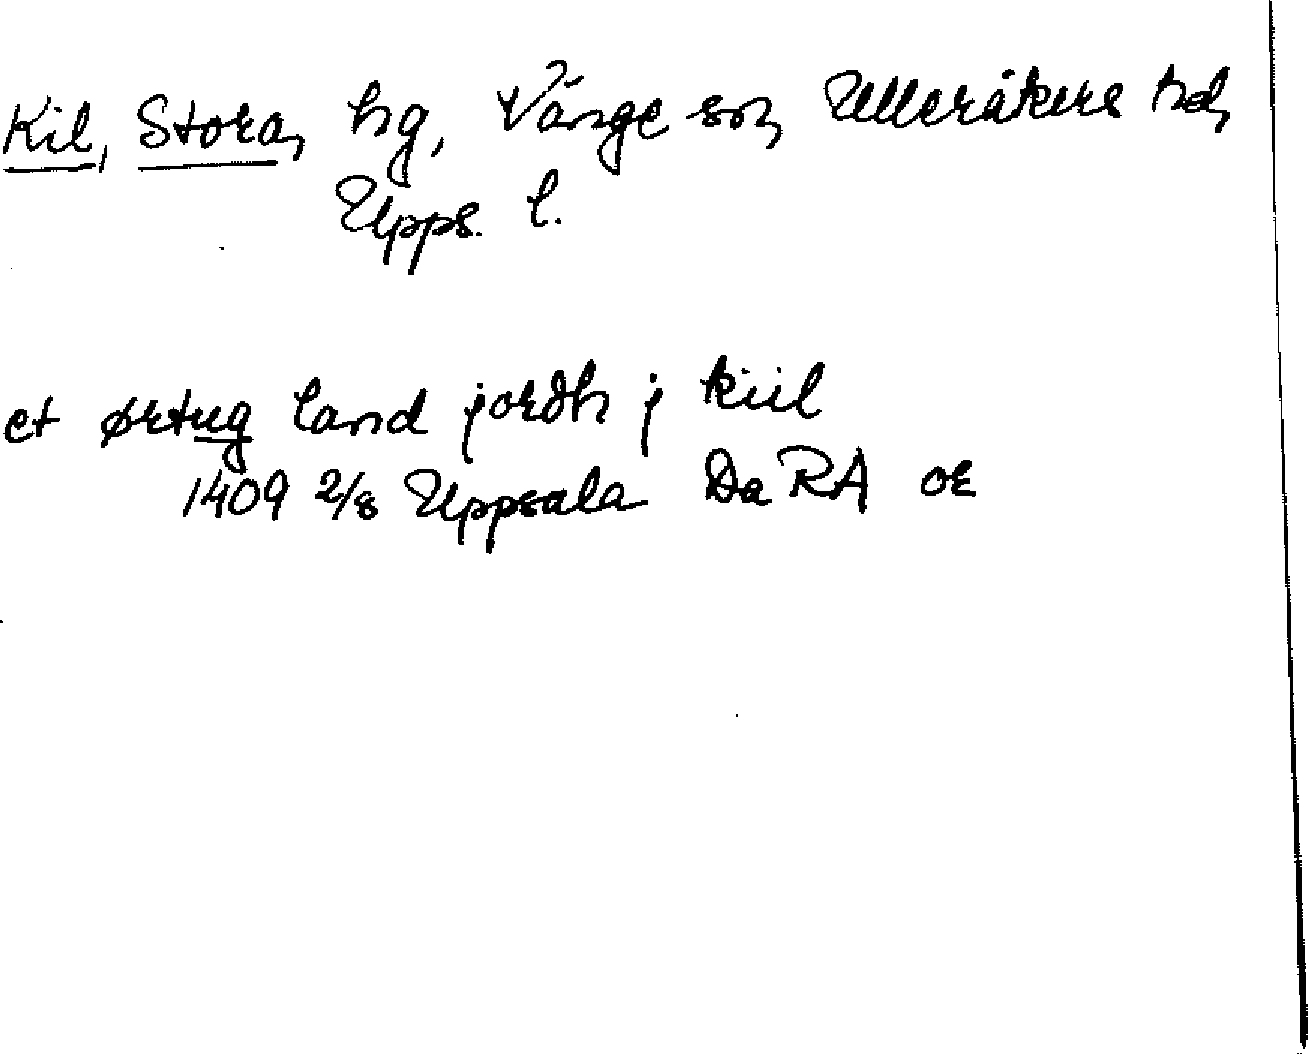 Kil, Stora, hg, Vänge sn, Ulleråkers hd,
Upps. l.
et ørtug land jordh j kiil
1409 2/8 Uppsala Da RA or